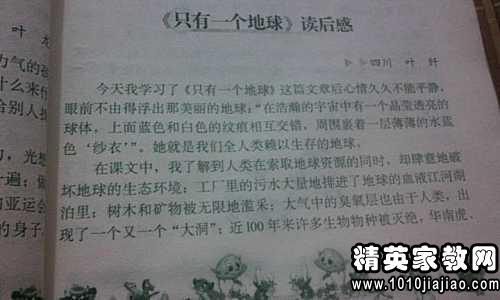 《只有一个地球》读后感
四川 叶
今天我学习了《只有一个地球》这篇文章后心情久久不能平静，
眼前不由得浮出那美丽的地球：“在浩瀚的宇宙中有一个晶莹透亮的
球体，上面蓝色和白色的纹痕相互交错，周围裹着一层薄薄的水蓝
色‘纱衣’”。她就是我们全人类赖以生存的地球。
在课文中，我了解到人类在索取地球资源的同时，却肆意地破
坏地球的生态环境：工厂里的污水大量地排进了地球的血液江河湖
泊里；树木和矿物被无限地滥采；大气中的臭氧层也由于人类，出
现了一个又一个“大洞”；近100年来许多生物物种被灭绝，华南虎、
叶
力气的
什么来
给别人
，光想
一遍；做
的亚运会
的身子
精英家教网
www.1010jiajiao.com